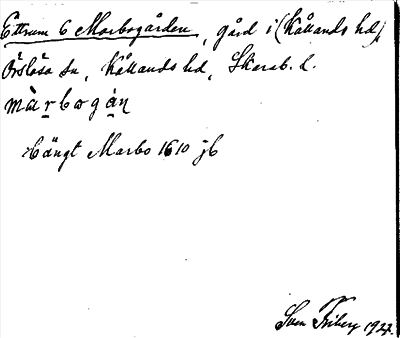 Ettrum 6 Marbogården, gård i (Kållands hd),
Örslösa sn, Kållands hd, Skarab. l.
màrbogán
Längt Marbo 1610 jb
Sven Friberg 1927.